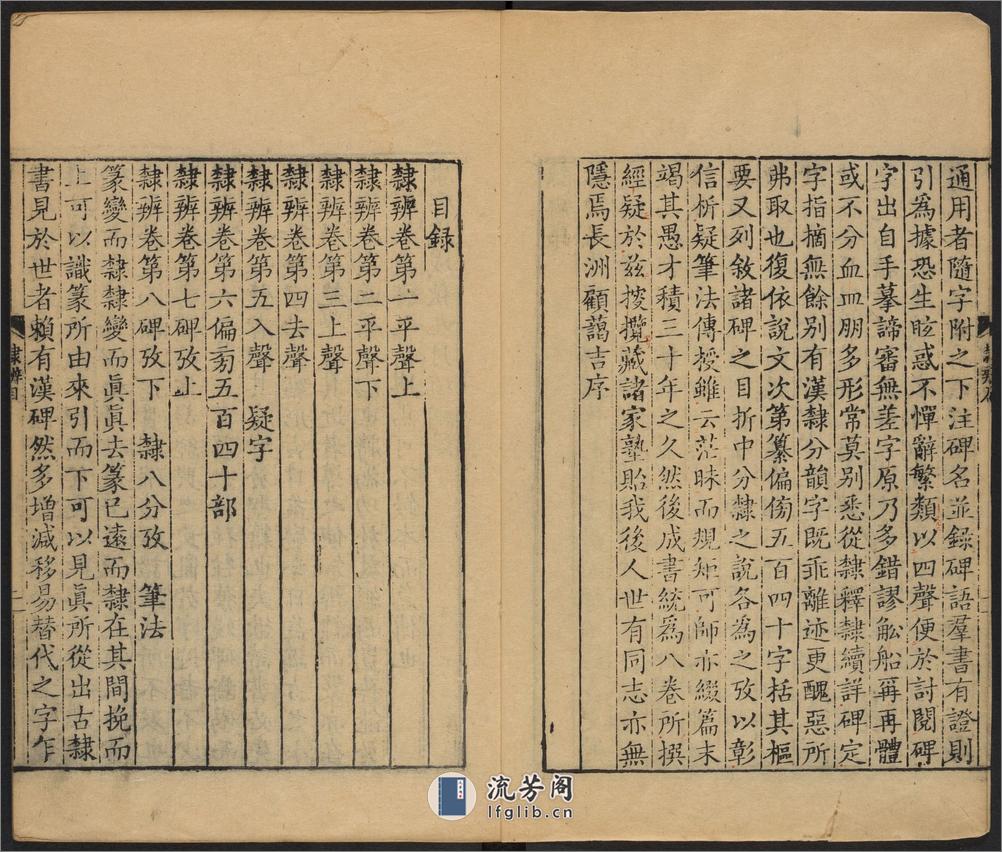 通用者隨字附之下注碑名並錄碑語羣書有證則
引為據恐生眩惑不憚辭繁類以四聲便於討閱碑
字出自手摹諦審無差字原乃多錯謬舩船再再體
或不分血皿朋多形常莫別悉從隸釋隸續詳碑定
字指摘無餘別有漢隸分韻字既乖離迹更醜惡所
弗取也復依說文次第纂偏傍五百四十字括其樞
要又列敘諸碑之目折中分隸之說各為之攷以彰
信析疑筆法傳授雖云茫昧而規矩可師亦綴篇末
竭其愚才積三十年之久然後成書統為八卷所撰
經疑於茲披攬藏諸家塾貽我後人世有同志亦無
隱焉長洲顧藹吉序
目錄
隸辨卷第一平聲上
隸辨卷第二平聲下
隸辨卷第三上聲
隸辨卷第四去聲
隸辨卷第五入聲 疑字
隸辨卷第六偏旁五百四十部
隸辨卷第七碑攷上
隸辨卷第八碑攷下 隸八分攷 筆法
篆變而隸隸變而眞眞去篆已遠而隸在其間挽而
上可以識篆所由來引而下可以見眞所從出古隸
書見於世者賴有漢碑然多增減移易替代之字乍
隸辨目
二
流芳阁
lfglib.cn